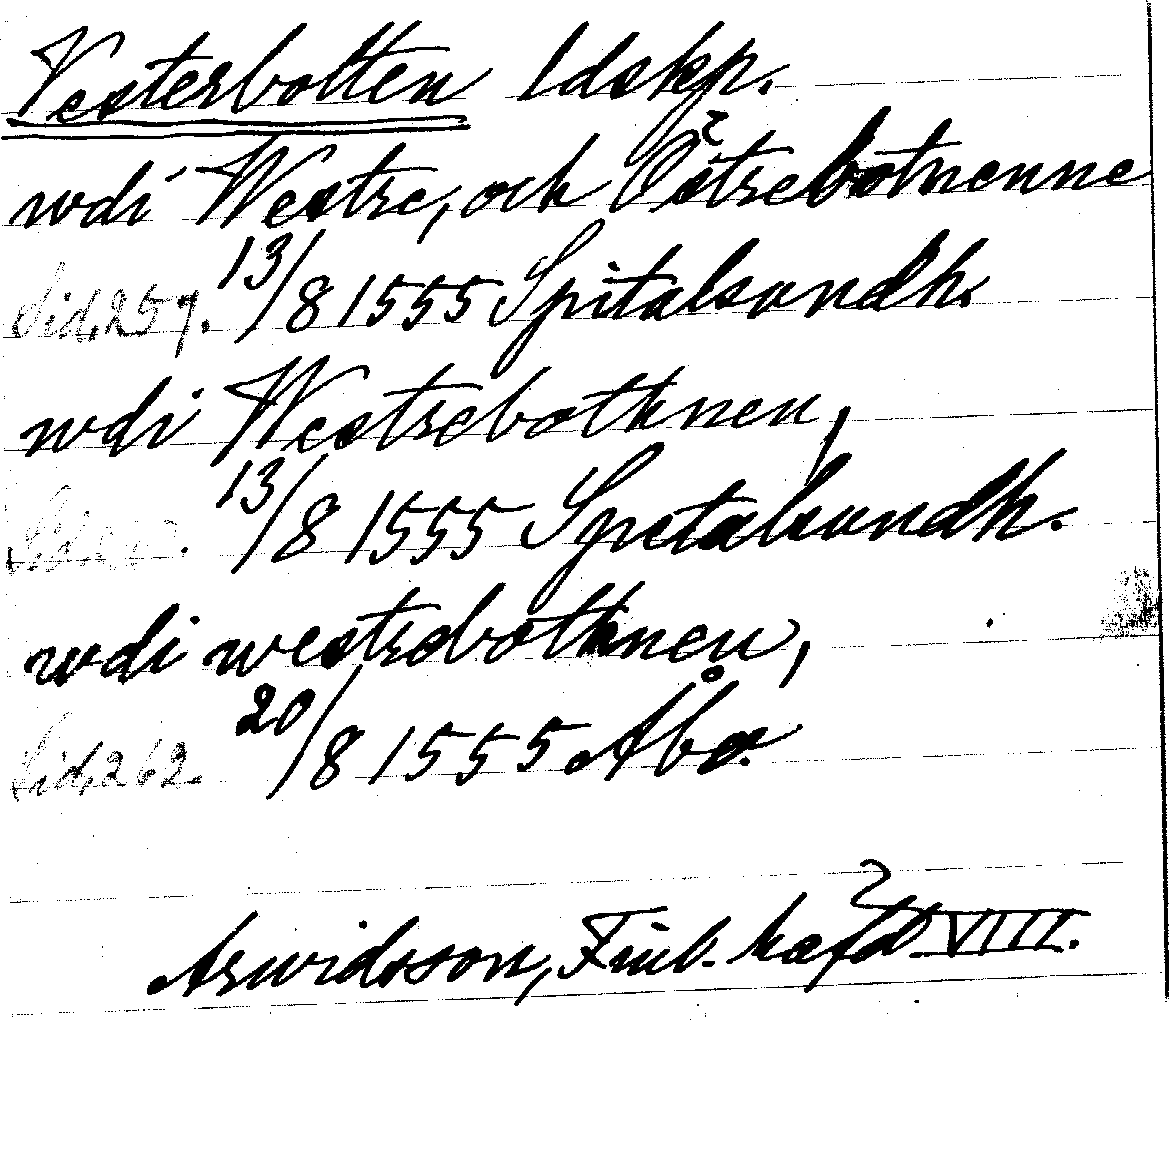 Vesterbotten ldskp.
wdi Westre, och Östrebotnenne
Sid. 257. 13/8 1555 Spitalsundh.
wdi Westrebothnen,
13/8 1555 Spetalsundh.
wdi westrebothnen,
Sid. 262. 20/8 1555 Åbo.
Arwidsson, Finl. häfd VIII.